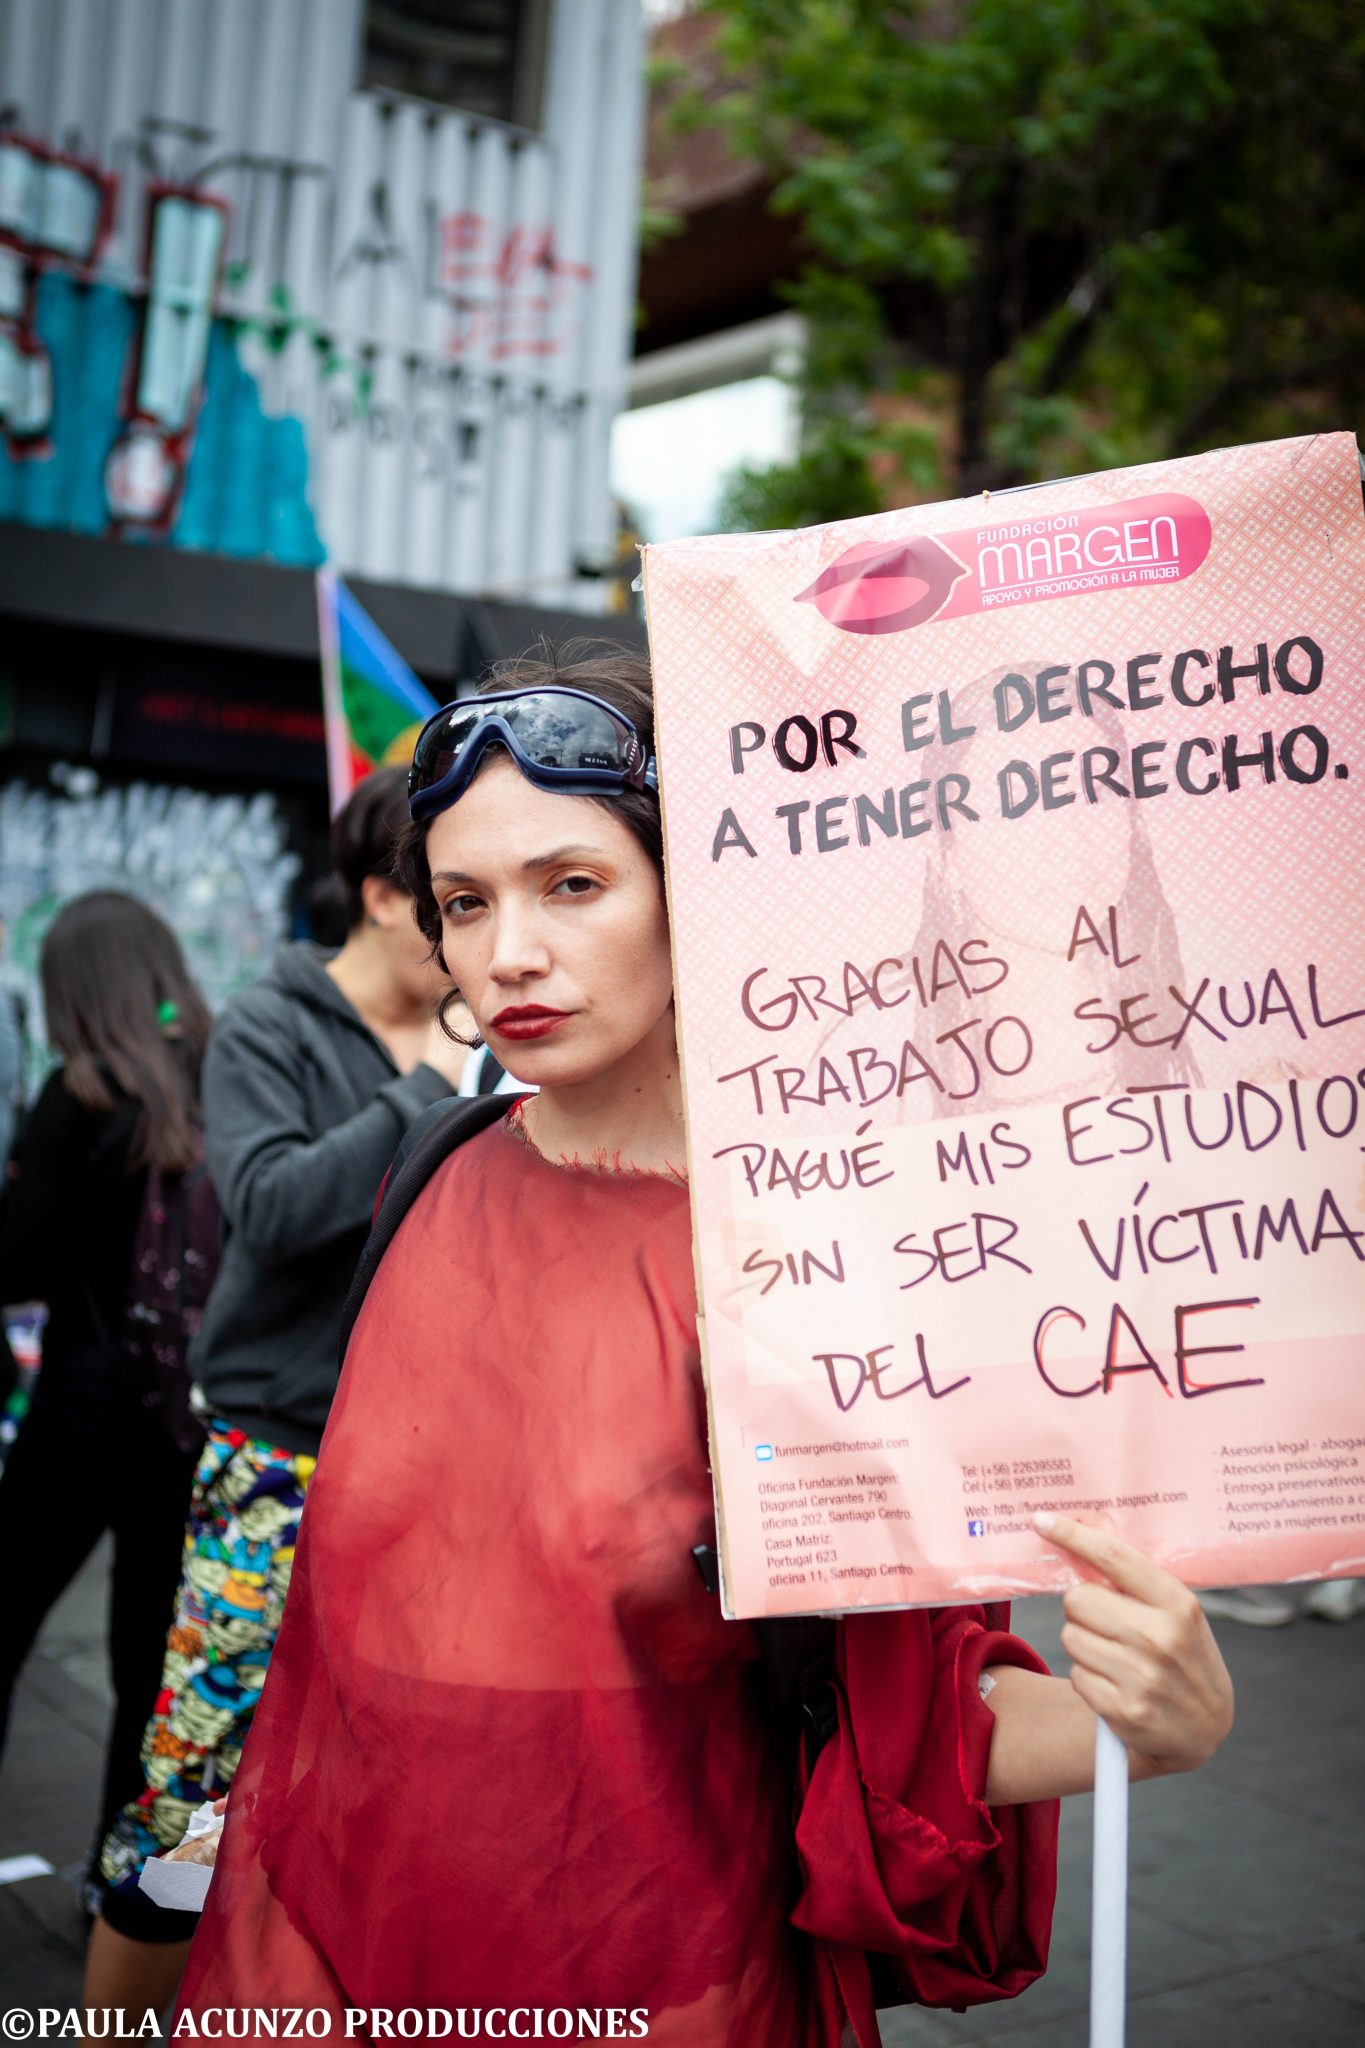 FUNDACIÓN
MARGEN
APOYO Y PROMOCIÓN A LA MUJER
POR EL DERECHO
A TENER DERECHO.
GRACIAS AL
TRABAJO SEXUAL
PAGUÉ MIS ESTUDIOS
SIN SER VÍCTIMA
DEL CAE
funmargen@hotmail.com
Oficina Fundación Margen:
Diagonal Cervantes 790
oficina 202, Santiago Centro.
Casa Matriz:
Portugal 623
oficina 11, Santiago Centro.
Tel: (+56) 226395583
Cel:(+56) 958733858
Web: http://fundacionmargen.blogspot.com
- Asesoria legal - aboga
- Atención psicológica
- Entrega preservativos
- Acompañamiento a
- Apoyo a mujeres
©PAULA ACUNZO PRODUCCIONES